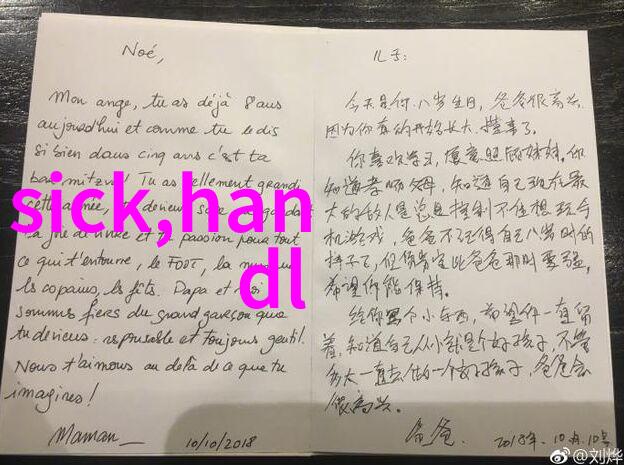 Noé,
Mon ange, tu as déjà 8 ans
aujourd'hui et comme tu le dis
si bien dans cinq ans c'est ta
bar mitzva! Tu as tellement grandi
cette année,
ta passion pour tout
ce qui t'entoure, le FOOT, la
les copains, les Papa et moi
sommes fiers du grand garçon que
tu deviens: responsable et toujours gentil.
Nous t'aimons au delà de ce que tu
imagines!
Maman_
10/10/2018
儿子:
今天是你八岁生日,爸爸很高兴
因为你真的开始长大,懂事了。
你喜欢学习,愿意照顾妹妹。你
知道孝顺父母,知道自己现在最
大的敌人是总是控制不住想玩手
机游戏,爸爸不记得自己八岁时的
样子了,但你肯定比爸爸那时要强,
希望你能保持。
给你写个小东西,希望你一直留
着,知道自己从小就是个好孩子,不管
多大一直去做一个好孩子,爸爸会
很高兴。
爸爸.
2018年.10月.10号
sick,han
dl
@刘烨